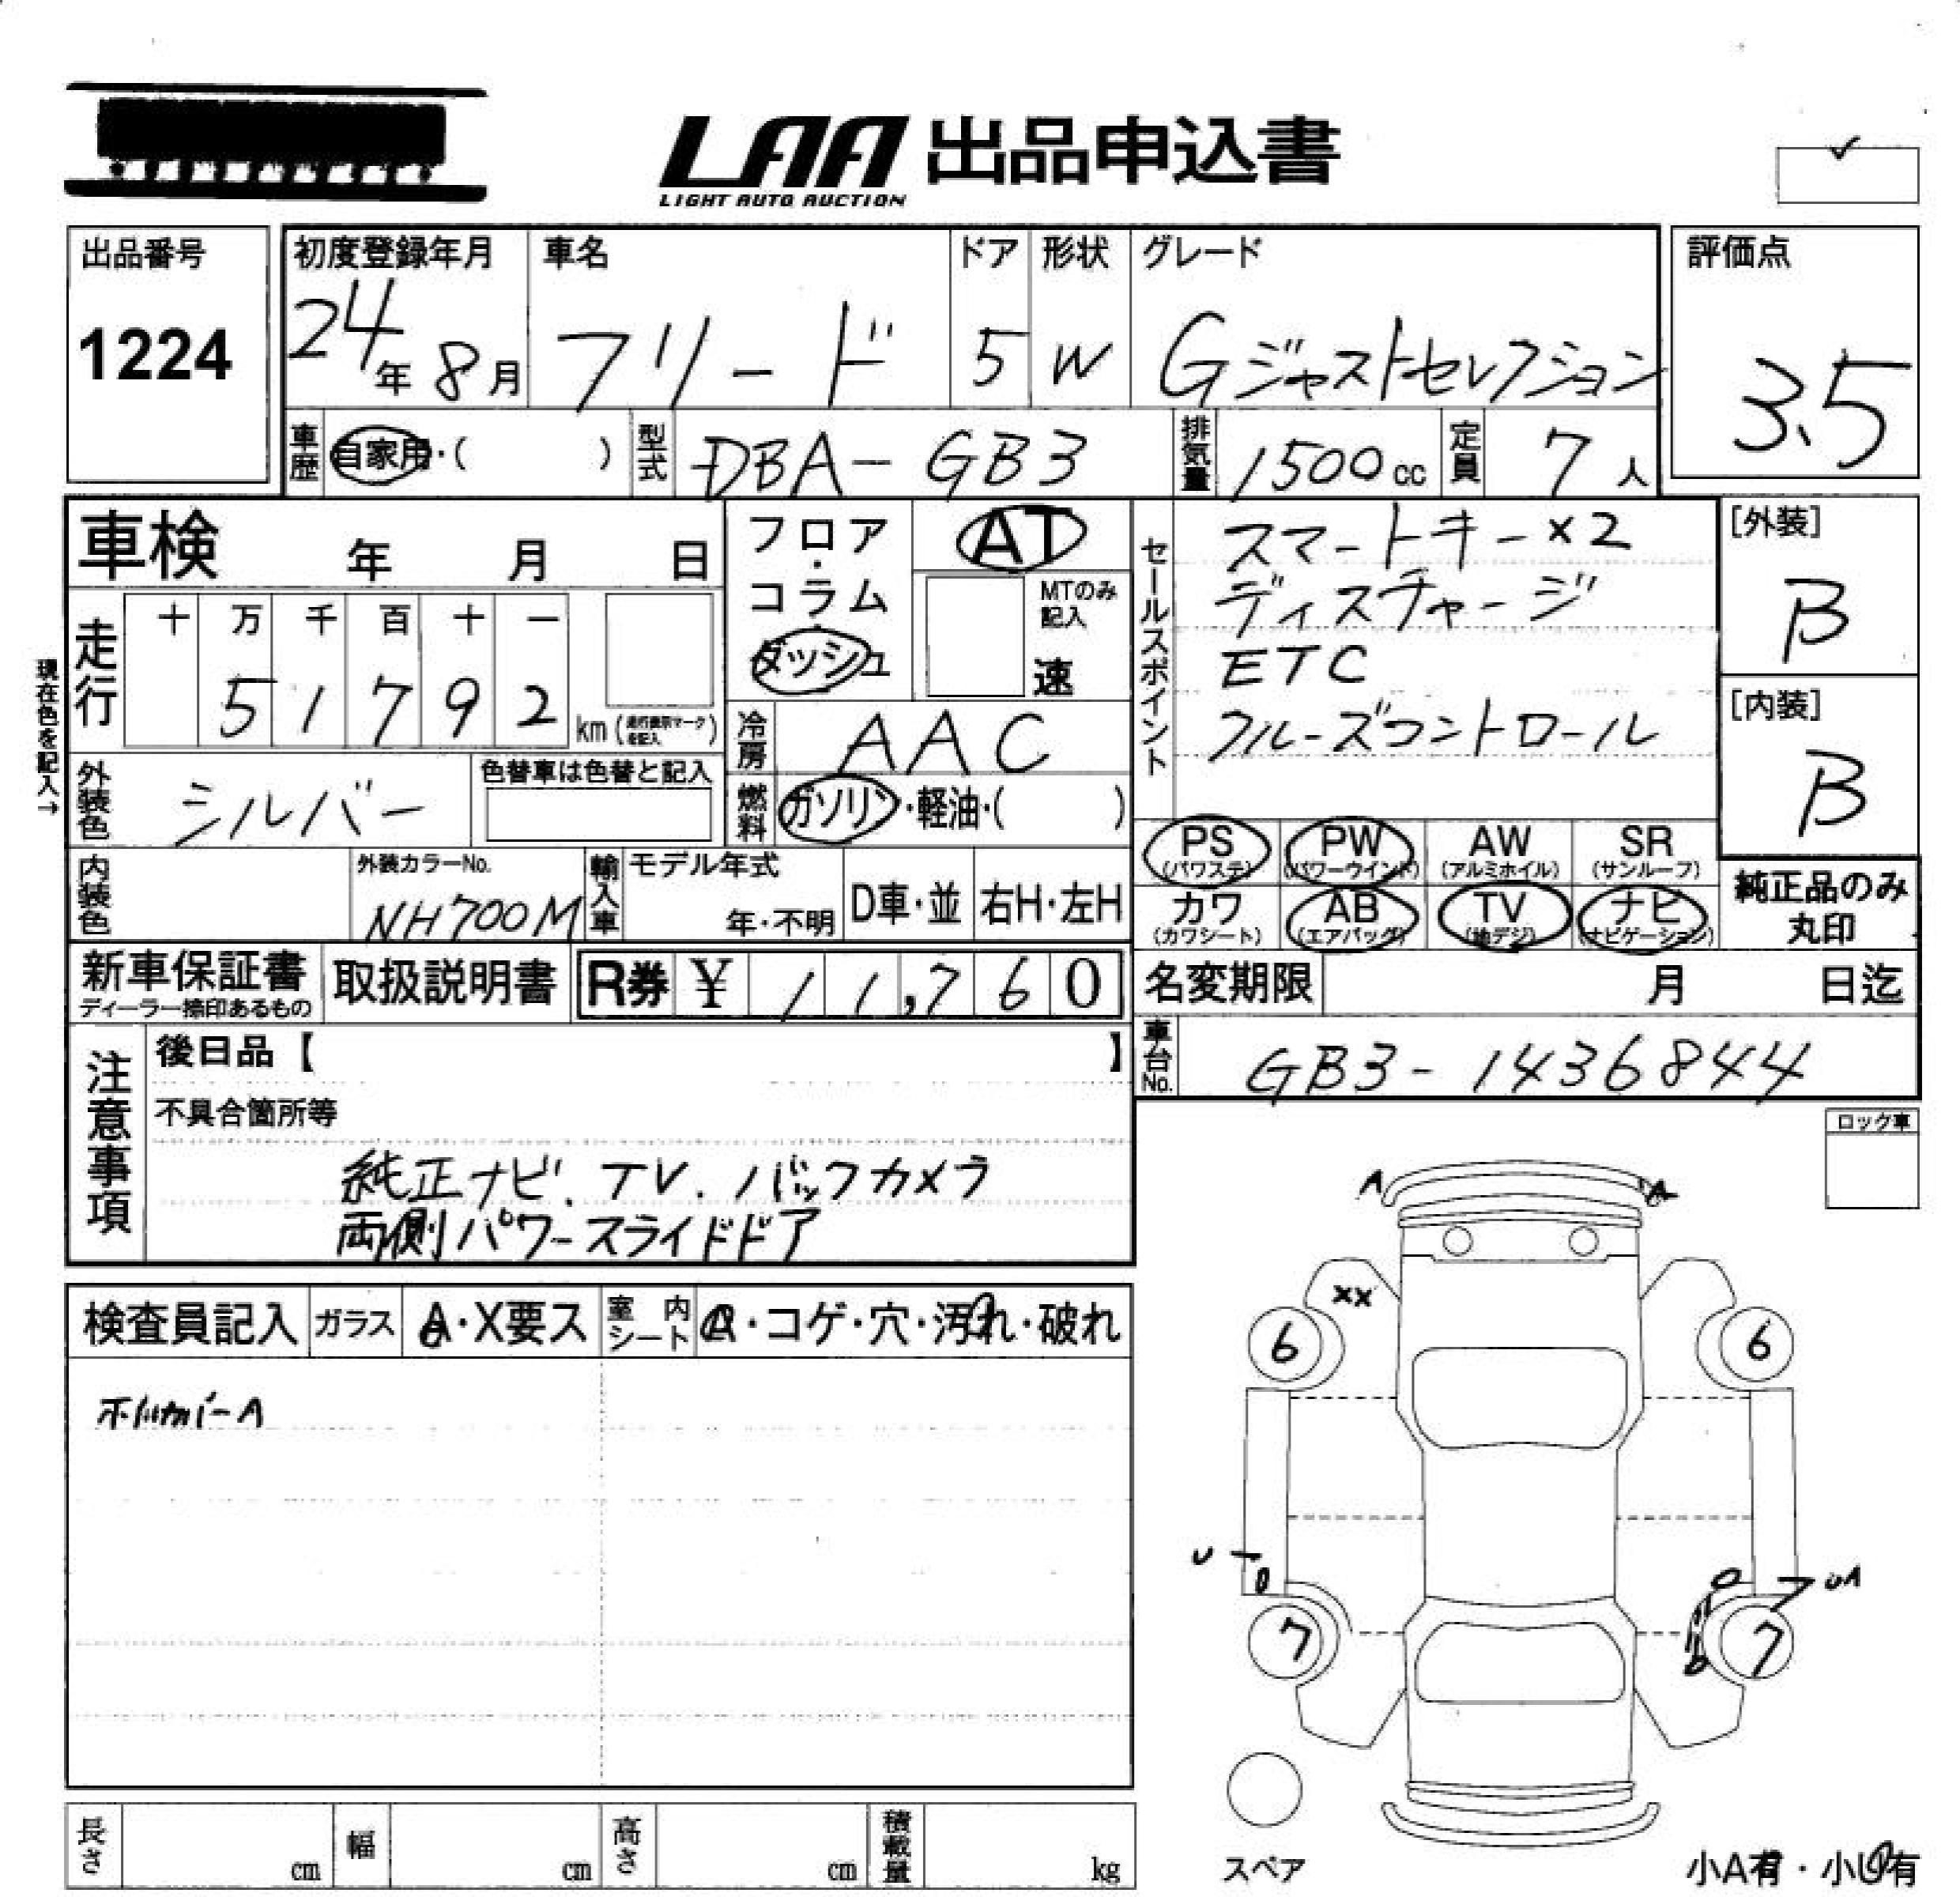 LAA 出品申込書
LIGHT AUTO AUCTION
出品番号 1224
初度登録年月 24年 8月
車名 フリード
ドア 5
形状 W
グレード Gジャストセレクション
評価点 3.5
車歴 自家用・( )
型式 DBA-GB3
排気量 1500cc
定員 7人
車検 年 月 日
フロア・コラム・ダッシュ
AT
MTのみ記入
速
セールスポイント
スマートキー×2
ディスチャージ
ETC
クルーズコントロール
[外装]
B
[内装]
B
現在色を記入→
走行 十 万 千 百 十 一
51792 km
冷房 AAC
外装色 シルバー
色替車は色替と記入
燃料 ガソリン・軽油・( )
PS (パワステ) PW (パワーウインド) AW (アルミホイル) SR (サンルーフ)
カワ (カワシート) AB (エアバッグ) TV (地デジ) ナビ (ナビゲーション)
純正品のみ丸印
内装色
外装カラーNo. NH700M
輸入車 モデル年式 年・不明
D車・並 右H・左H
新車保証書
ディーラー捺印あるもの
取扱説明書
R券 ¥ 11,760
名変期限 月 日迄
車台No. GB3-1436844
注意事項
後日品【 】
不具合箇所等
純正ナビ.TV.バックカメラ
両側パワースライドドア
ロック車
検査員記入 ガラス A・X要ス 室内シート ・コゲ・穴・汚れ・破れ
ホイルカバーA
A A
XX
6 6
U UA
7 7
スペア
長さ cm 幅 cm 高さ cm 積載量 kg
小A有・小U有